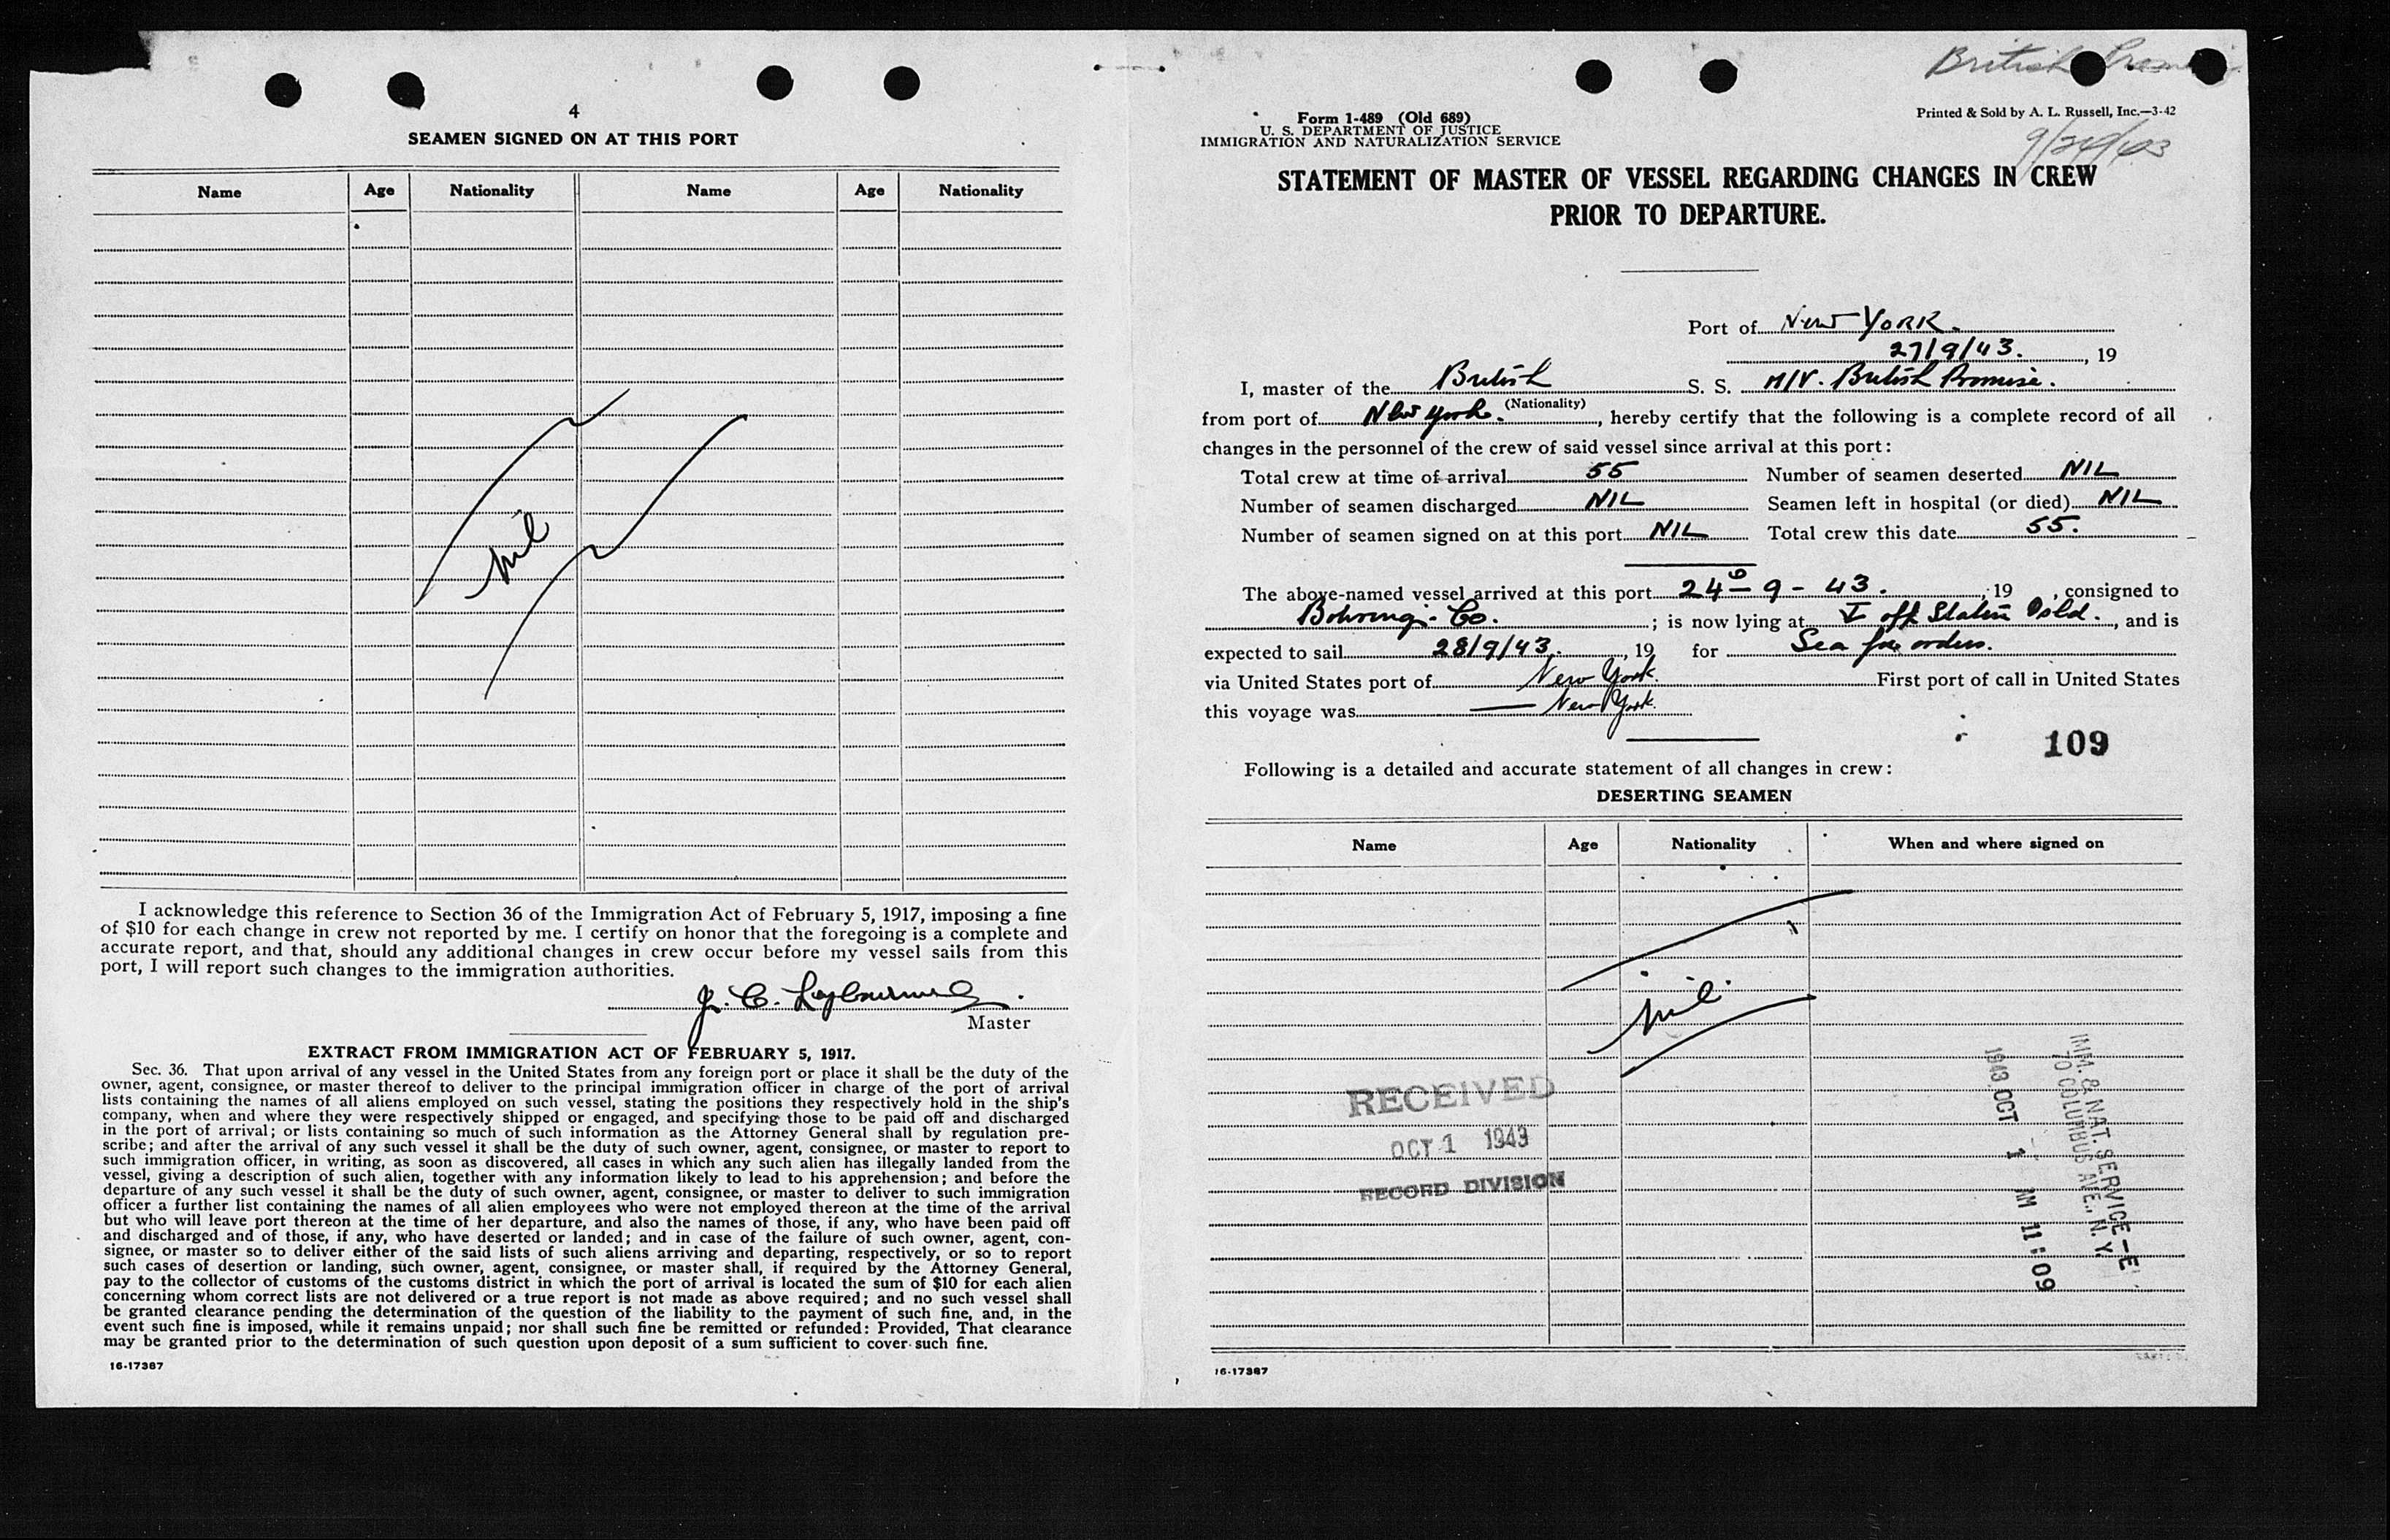 4
SEAMEN SIGNED ON AT THIS PORT
Name Age Nationality Name Age Nationality
nil
I acknowledge this reference to Section 36 of the Immigration Act of February 5, 1917, imposing a fine
of $10 for each change in crew not reported by me. I certify on honor that the foregoing is a complete and
accurate report, and that, should any additional changes in crew occur before my vessel sails from this
port, I will report such changes to the immigration authorities.
J. C.
Master
EXTRACT FROM IMMIGRATION ACT OF FEBRUARY 5, 1917.
Sec. 36. That upon arrival of any vessel in the United States from any foreign port or place it shall be the duty of the
owner, agent, consignee, or master thereof to deliver to the principal immigration officer in charge of the port of arrival
lists containing the names of all aliens employed on such vessel, stating the positions they respectively hold in the ship's
company, when and where they were respectively shipped or engaged, and specifying those to be paid off and discharged
in the port of arrival; or lists containing so much of such information as the Attorney General shall by regulation pre-
scribe; and after the arrival of any such vessel it shall be the duty of such owner, agent, consignee, or master to report to
such immigration officer, in writing, as soon as discovered, all cases in which any such alien has illegally landed from the
vessel, giving a description of such alien, together with any information likely to lead to his apprehension; and before the
departure of any such vessel it shall be the duty of such owner, agent, consignee, or master to deliver to such immigration
officer a further list containing the names of all alien employees who were not employed thereon at the time of the arrival
but who will leave port thereon at the time of her departure, and also the names of those, if any, who have been paid off
and discharged and of those, if any, who have deserted or landed; and in case of the failure of such owner, agent, con-
signee, or master so to deliver either of the said lists of such aliens arriving and departing, respectively, or so to report
such cases of desertion or landing, such owner, agent, consignee, or master shall, if required by the Attorney General,
pay to the collector of customs of the customs district in which the port of arrival is located the sum of $10 for each alien
concerning whom correct lists are not delivered or a true report is not made as above required; and no such vessel shall
be granted clearance pending the determination of the question of the liability to the payment of such fine, and, in the
event such fine is imposed, while it remains unpaid; nor shall such fine be remitted or refunded: Provided, That clearance
may be granted prior to the determination of such question upon deposit of a sum sufficient to cover such fine.
16-17387
British
Form 1-489 (Old 689)
U. S. DEPARTMENT OF JUSTICE
IMMIGRATION AND NATURALIZATION SERVICE
Printed & Sold by A. L. Russell, Inc.—3-42
9/24/43
STATEMENT OF MASTER OF VESSEL REGARDING CHANGES IN CREW
PRIOR TO DEPARTURE.
Port of New YORK.
27/9/43. , 19
I, master of the British S. S. M/V. British Promise.
(Nationality)
from port of New York. , hereby certify that the following is a complete record of all
changes in the personnel of the crew of said vessel since arrival at this port:
Total crew at time of arrival 55 Number of seamen deserted NIL
Number of seamen discharged NIL Seamen left in hospital (or died) NIL
Number of seamen signed on at this port NIL Total crew this date 55.
The above-named vessel arrived at this port 24 - 9 - 43. , 19 , consigned to
Co. ; is now lying at off Staten Isld. , and is
expected to sail 28/9/43. , 19 for Sea for orders.
via United States port of New York. First port of call in United States
this voyage was — New York.
109
Following is a detailed and accurate statement of all changes in crew:
DESERTING SEAMEN
Name Age Nationality When and where signed on
nil.
RECEIVED
OCT 1 1943
RECORD DIVISION
IMM. & NAT. SERVICE—E
70 COLUMBUS AVE., N. Y.
1943 OCT 1 AM 11:09
16-17387